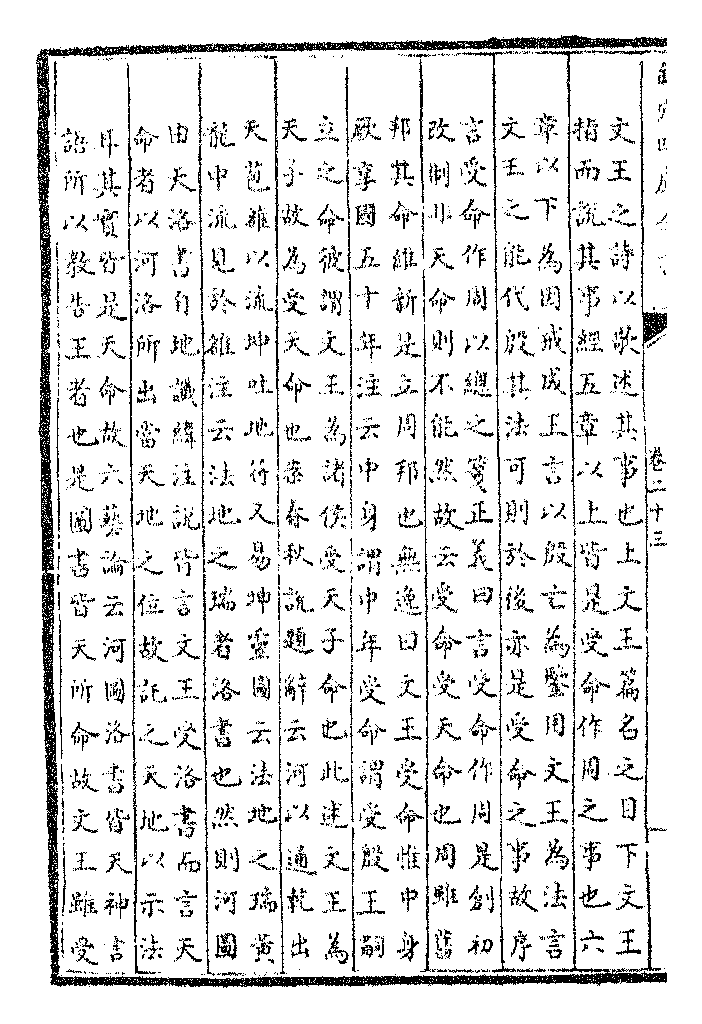 欽定四庫全書
卷二十三
一
文王之詩以歌述其事也上文王篇名之目下文王
指而說其事經五章以上皆是受命作周之事也六
章以下為因戒成王言以殷亡為鑒用文王為法言
文王之能代殷其法可則於後亦是受命之事故序
言受命作周以總之箋正義曰言受命作周是創初
改制非天命則不能然故云受命受天命也周雖舊
邦其命維新是立周邦也無逸曰文王受命惟中身
厥享國五十年注云中身謂中年受命謂受殷王嗣
立之命彼謂文王為諸侯受天子命也此述文王為
天子故為受天命也案春秋說題辭云河以通乾出
天苞雒以流坤吐地符又易坤靈圖云法地之瑞黃
龍中流見於雒注云法地之瑞者洛書也然則河圖
由天洛書自地讖緯注說皆言文王受洛書而言天
命者以河洛所出當天地之位故託之天地以示法
耳其實皆是天命故六藝論云河圖洛書皆天神言
語所以教告王者也是圖書皆天所命故文王雖受